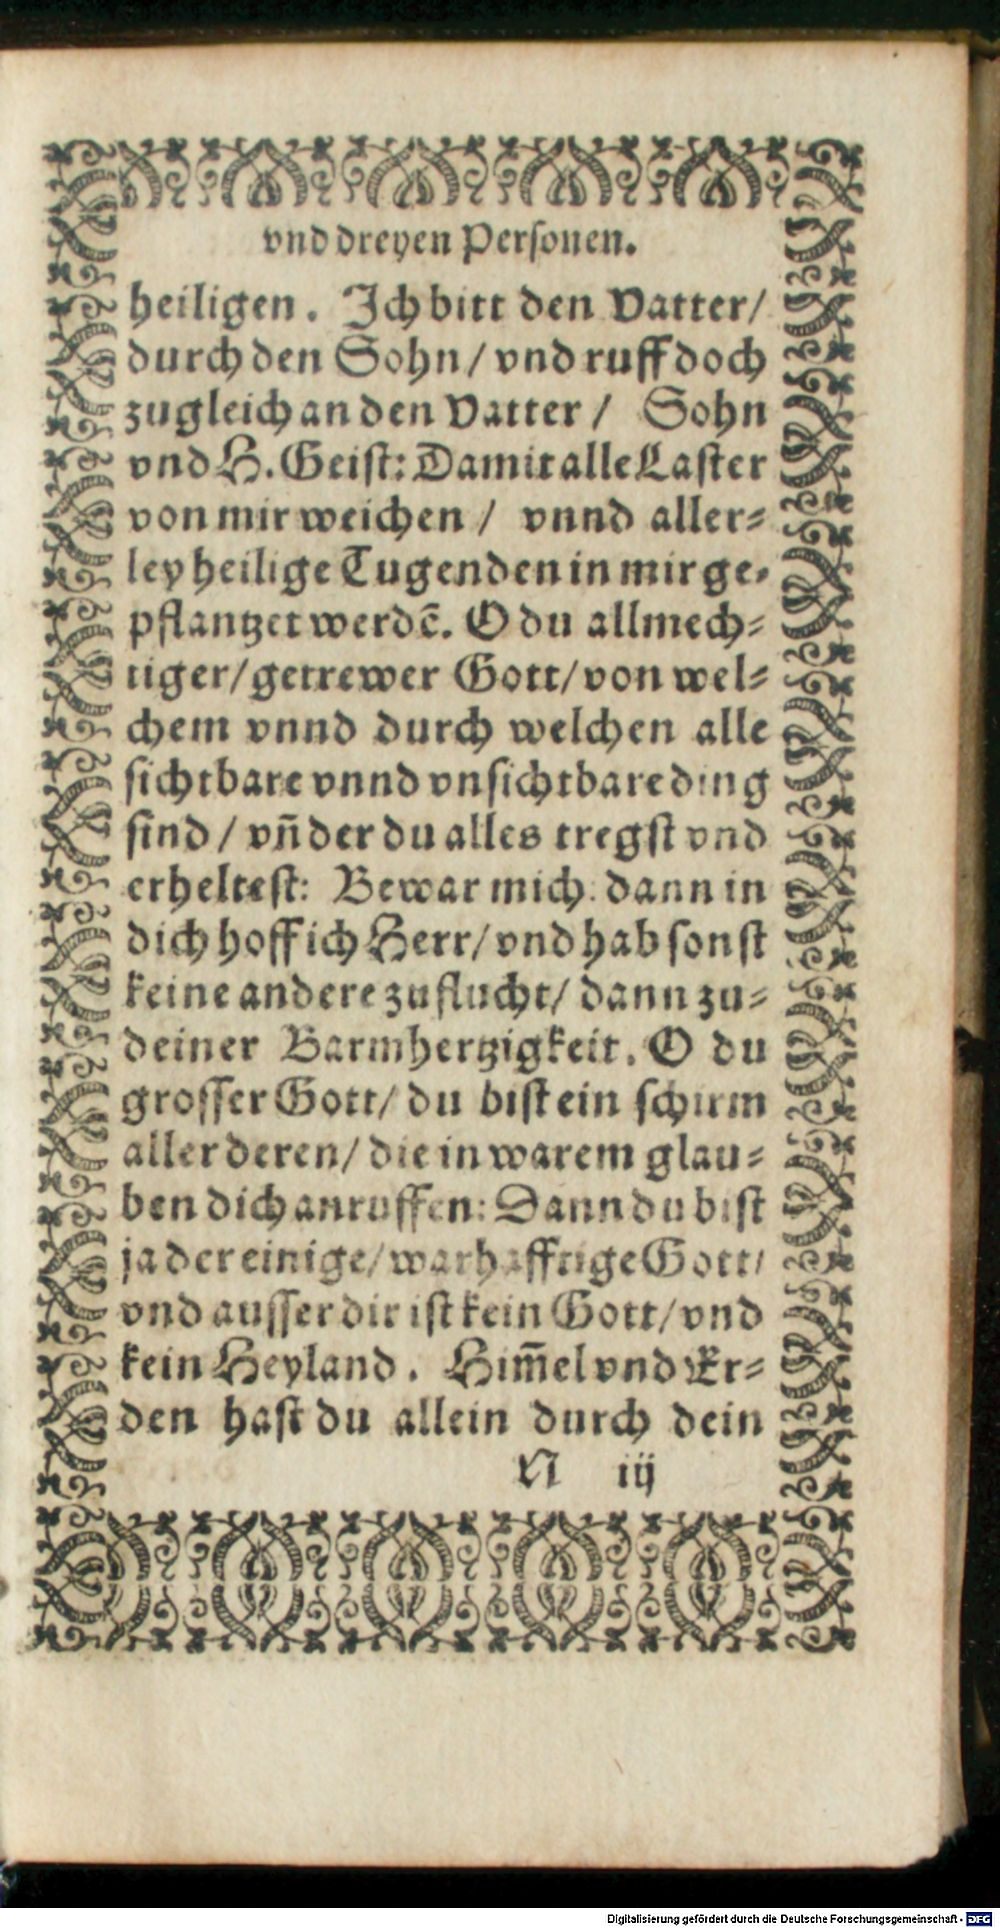 vnd dreyen Personen.
heiligen. Ich bitt den Vatter/
durch den Sohn/ vnd ruff doch
zugleich an den Vatter/ Sohn
vnd H. Geist: Damit alle Laster
von mir weichen/ vnnd aller-
ley heilige Tugenden in mir ge-
pflantzet werdē. O du allmech-
tiger/ getrewer Gott/ von wel-
chem vnnd durch welchen alle
sichtbare vnnd vnsichtbare ding
sind/ vñ der du alles tregst vnd
erheltest: Bewar mich. dann in
dich hoff ich Herr/ vnd hab sonst
keine andere zuflucht/ dann zu-
deiner Barmhertzigkeit. O du
grosser Gott/ du bist ein schirm
aller deren/ die in warem glau-
ben dich anruffen: Dann du bist
ja der einige/ warhafftige Gott/
vnd ausser dir ist kein Gott/ vnd
kein Heyland. Him̄el vnd Er-
den hast du allein durch dein
N iij
Digitalisierung gefördert durch die Deutsche Forschungsgemeinschaft - DFG